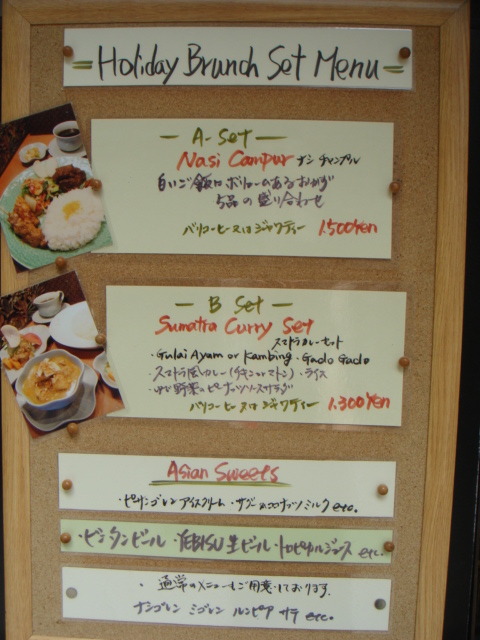 Holiday Brunch Set Menu
A-Set
Nasi Campur ナシ チャンプル
白いご飯にボリュームあるおかず
5品の盛り合わせ
バリコーヒー又はジャワティー 1.500Yen
B Set
Sumatra Curry Set
スマトラカレーセット
・Gulai Ayam or Kambing ・Gado Gado
・スマトラ風カレー(チキンorマトン)・ライス
・ゆで野菜のピーナッツソースサラダ
バリコーヒー又はジャワティー 1.300Yen
Asian Sweets
・ピサンゴレンアイスクリーム ・サゴ ココナッツミルク etc.
・ビンタンビール ・YEBISU生ビール ・トロピカルジュース etc.
・通常のメニューもご用意しております。
ナシゴレン ミゴレン ルンピア サテ etc.